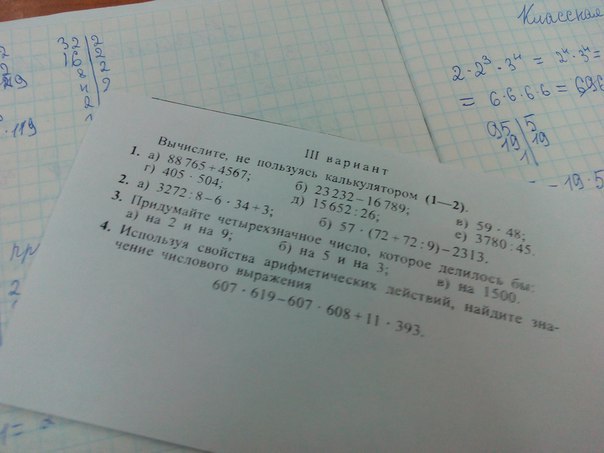 32 | 2
16 | 2
8 | 2
4 | 2
2
119
Классная
2 · 2³ · 3⁴ = 2⁴ · 3⁴ =
= 6 · 6 · 6 · 6 =
95 | 5
19 | 19
1
- 19 · 5
III вариант
Вычислите, не пользуясь калькулятором (1—2).
1. а) 88 765 + 4567; б) 23 232 − 16 789; в) 59 · 48;
г) 405 · 504; д) 15 652 : 26; е) 3780 : 45.
2. а) 3272 : 8 − 6 · 34 + 3; б) 57 · (72 + 72 : 9) − 2313.
3. Придумайте четырехзначное число, которое делилось бы:
а) на 2 и на 9; б) на 5 и на 3; в) на 1500.
4. Используя свойства арифметических действий, найдите зна-
чение числового выражения
607 · 619 − 607 · 608 + 11 · 393.